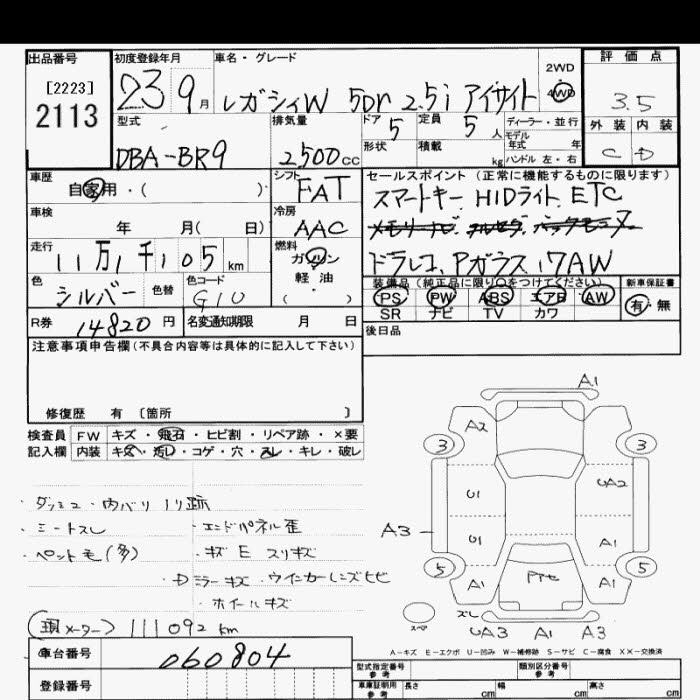 出品番号
[2223]
2113
初度登録年月
23 9月
車名・グレード
レガシィW 5Dr 2.5i アイサイト
2WD
4WD
評価点
3.5
外装 内装
C D
型式
DBA-BR9
排気量
2500cc
ドア 5
形状
定員 5人
積載 kg
ディーラー・並行
モデル年式 年
ハンドル 左・右
車歴
自家用・( )
シフト
FAT
セールスポイント (正常に機能するものに限ります)
スマートキー、HIDライト、ETC
ドラレコ、Pガラス、17AW
車検
年 月( 日)
冷房
AAC
走行
11万1千105km
燃料
ガソリン
軽油
( )
色
シルバー
色替
色コード
G1U
装備品 (純正品に限り○をつけてください)
PS PW ABS エアB AW
SR ナビ TV カワ
新車保証書
有・無
R券 14820円
名変通知期限 月 日
後日品
注意事項申告欄(不具合内容等は具体的に記入して下さい)
修復歴 有 [箇所 ]
検査員 FW キズ・飛石・ヒビ割・リペア跡・×要
記入欄 内装 キズ・汚レ・コゲ・穴・スレ・キレ・破レ
・内バリ ノリ跡
・シートスレ ・エンドパネル歪
・ペット毛(多) ・キズE スリキズ
・Dミラーキズ ・ウインカーレンズヒビ
・ホイールキズ
(現メーター) 111092 km
A1
A2
3 3
U1 UA2
A3 U1 A1
5 5
A1 A1
スペア
ズレ
UA3 A1 A3
A-キズ E-エクボ U-凹み W-補修跡 S-サビ C-腐食 XX-交換済
車台番号 060804
登録番号
型式指定番号
参考
類別区分番号
参考
車庫証明用
参考
長さ cm 幅 cm 高さ cm